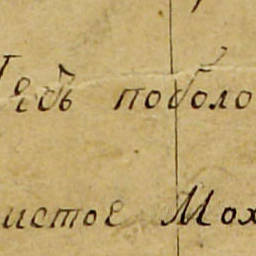 Гедъ поболо
истое Мох